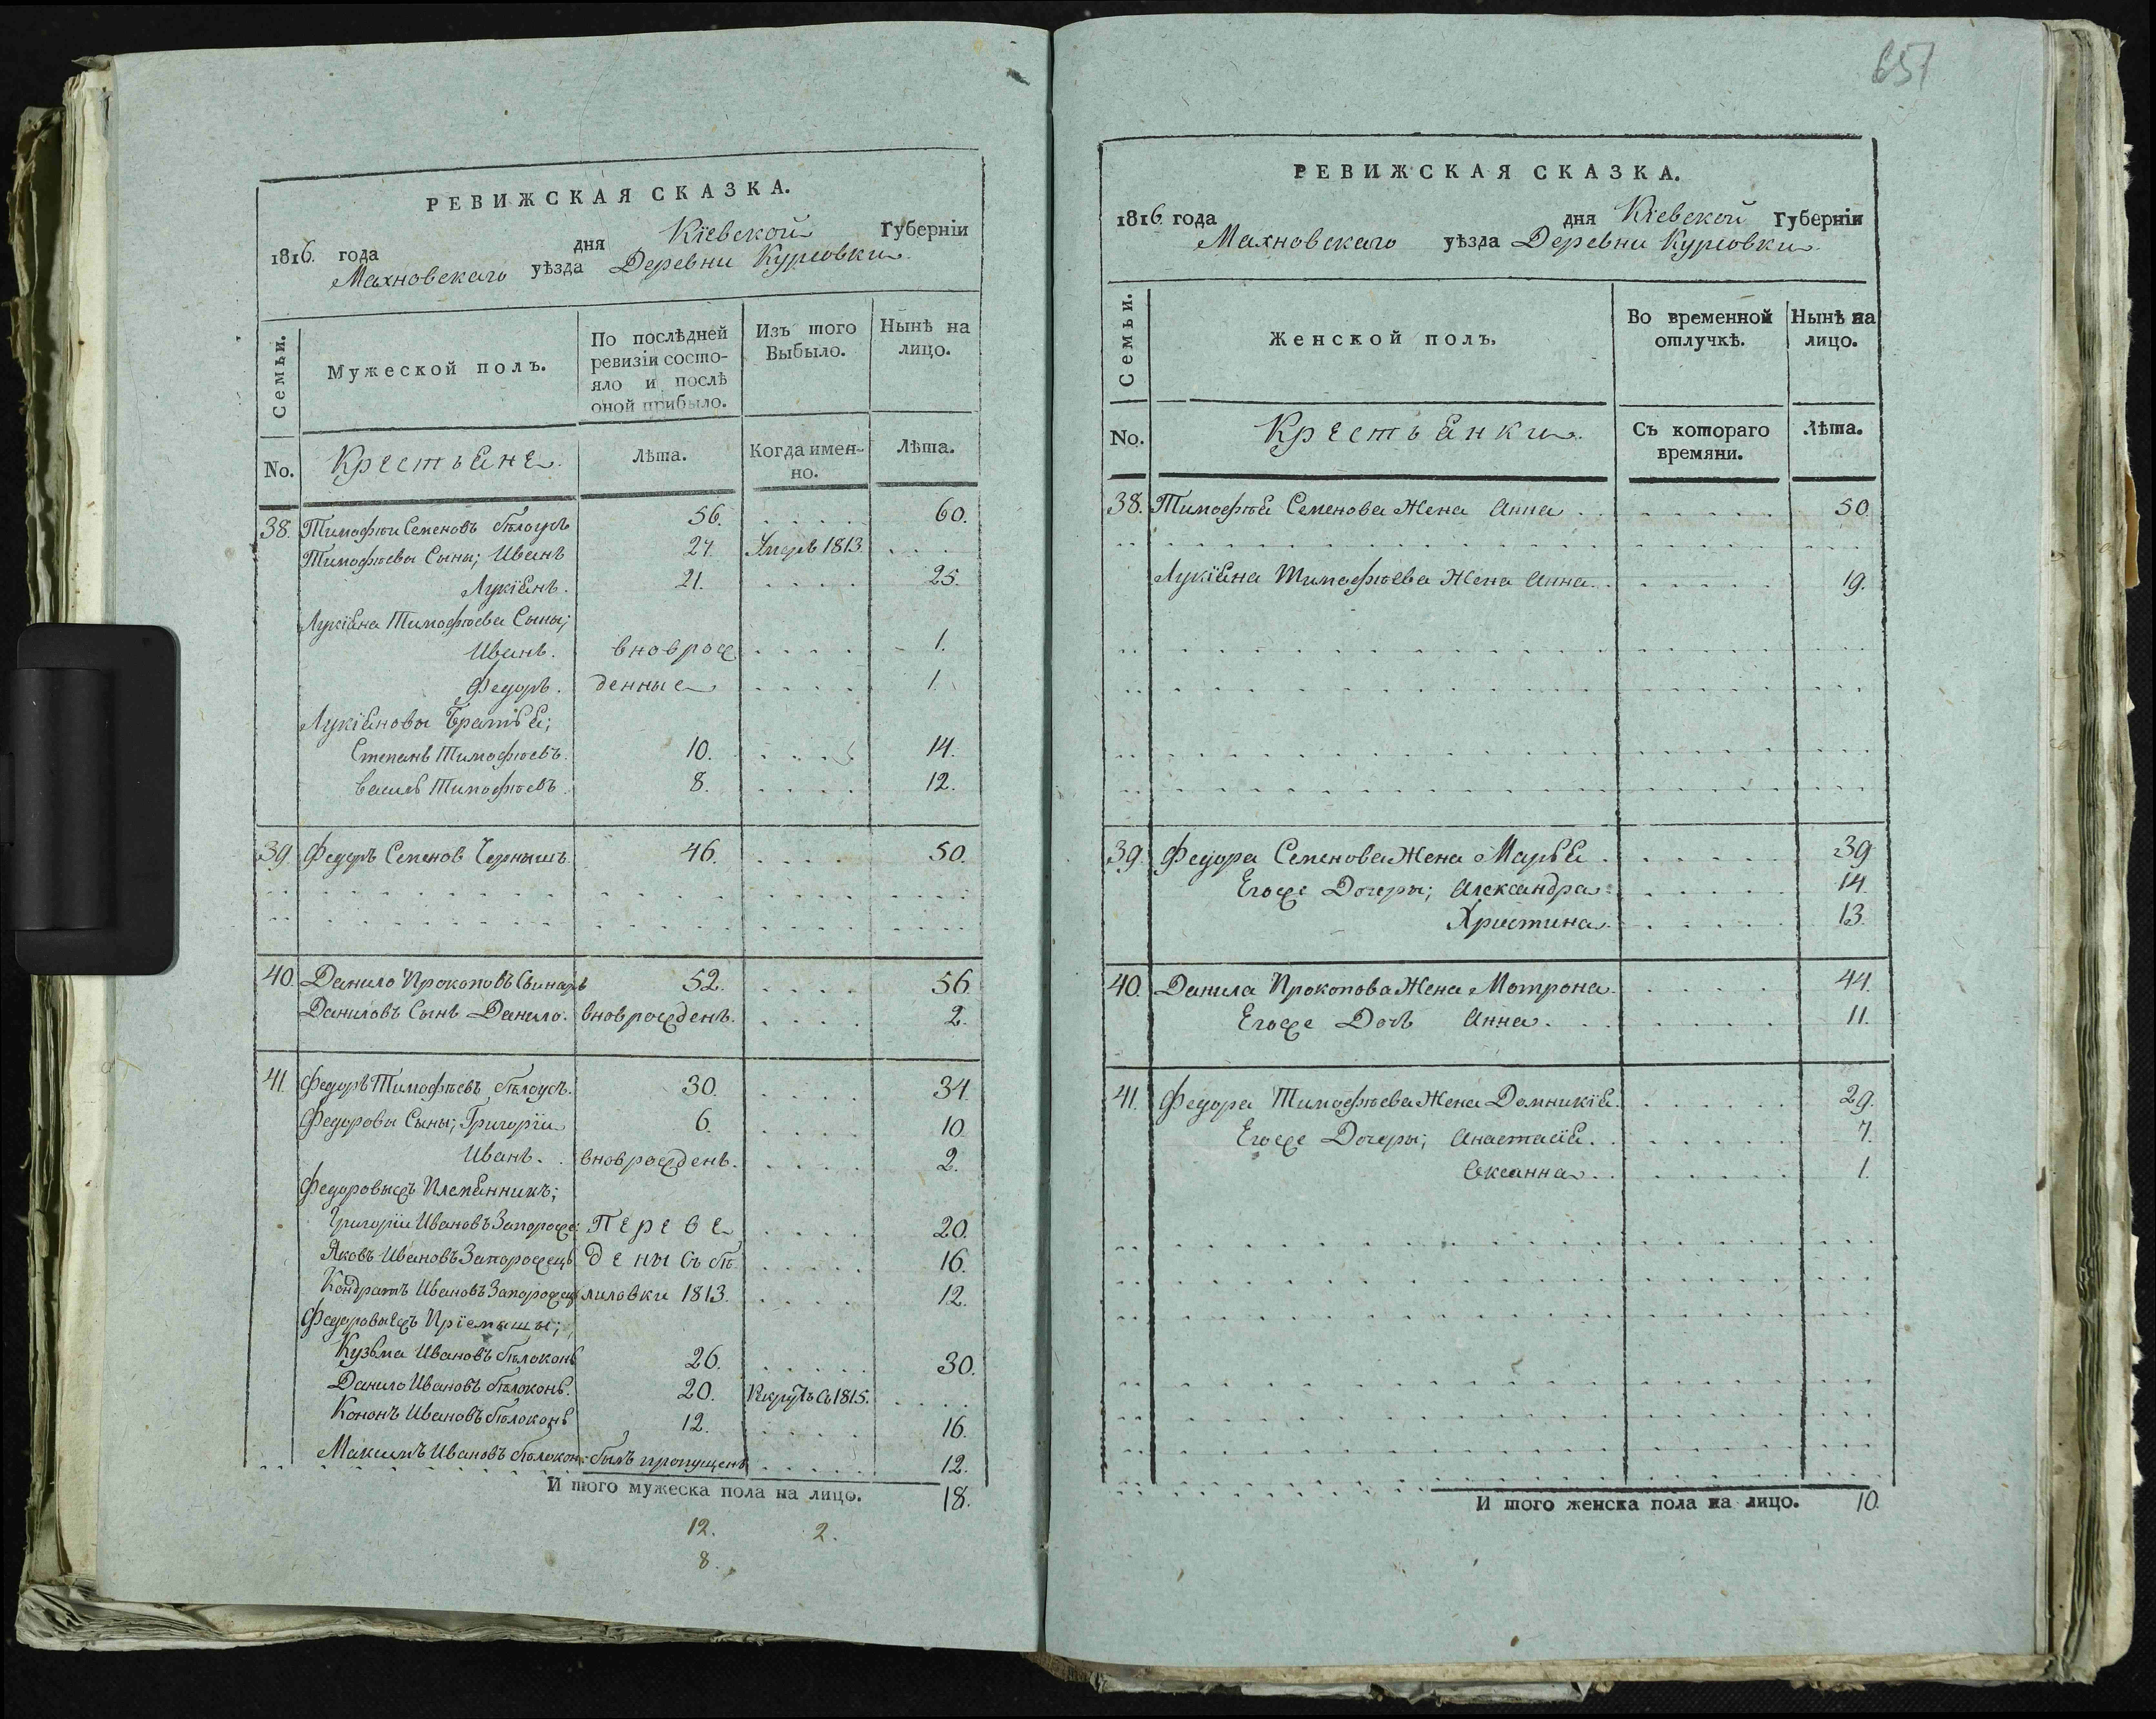 РЕВИЖСКАЯ СКАЗКА.
1816. года дня Кіевской Губерніи
Махновскаго уѣзда Деревни Курловки
Семьи.
Мужеской полъ.
По послѣдней ревизіи состо-
яло и послѣ оной прибыло.
Изъ того Выбыло.
Нынѣ на лицо.
No.
Крестьяне
Лѣта.
Когда имен-
но.
Лѣта.
38. Тимофѣи Семеновъ бѣлоусъ 56. 60.
Тимофѣевы Сыны; Иванъ 27. Умеръ 1813.
Лукіянъ. 21. 25.
Лукіяна Тимофѣева Сыны;
Иванъ. вноврож 1.
Федоръ. денные 1.
Лукіяновы Братья;
Степанъ Тимофѣевъ. 10. 14.
василь Тимофѣевъ. 8. 12.
39. Федоръ Семенов Чернышъ 46. 50.
40. Данило Прокоповъ Свинаръ 52. 56.
Даниловъ Сынъ Данило. вноврожденъ. 2.
41. Федоръ Тимофѣевъ бѣлоусъ. 30. 34.
Федоровы Сыны; Григорїи 6. 10.
Иванъ. вноврожденъ. 2.
Федоровыжъ Племянникъ;
Григорїи Ивановъ Запороже: Переве 20.
Яковъ Ивановъ Запорожецъ дены Съ бѣ 16.
Кондратъ Ивановъ Запорожецъ лиловки 1813. 12.
Федоровыежъ Прїемышы;
Кузьма Ивановъ бѣлоконь 26. 30.
Данило Ивановъ бѣлоконь. 20. Рекрутъ Съ 1815.
Кононъ Ивановъ бѣлоконь 12. 16.
Максимъ Ивановъ бѣлокон: былъ пропущенъ 12.
И того мужеска пола на лицо. 18.
12. 2.
8.
651
РЕВИЖСКАЯ СКАЗКА.
1816. года дня Кіевской Губерніи
Махновскаго уѣзда Деревни Курловки
Семьи.
Женской полъ.
Во временной отлучкѣ.
Нынѣ на лицо.
No.
Крестьянки.
Съ котораго времяни.
Лѣта.
38. Тимофѣя Семенова Жена Анна 50
Лукіяна Тимофѣева Жена Анна 19.
39. Федора Семенова Жена Марья 39
Егоже Дочеры; Александра 14.
Христина 13.
40. Данила Прокопова Жена Мотрона 44.
Егоже Дочь Анна. 11.
41. Федора Тимофѣева Жена Домникія. 29.
Егоже Дочеры; Анастасія. 7.
Оксанна 1.
И того женска пола на лицо. 10.